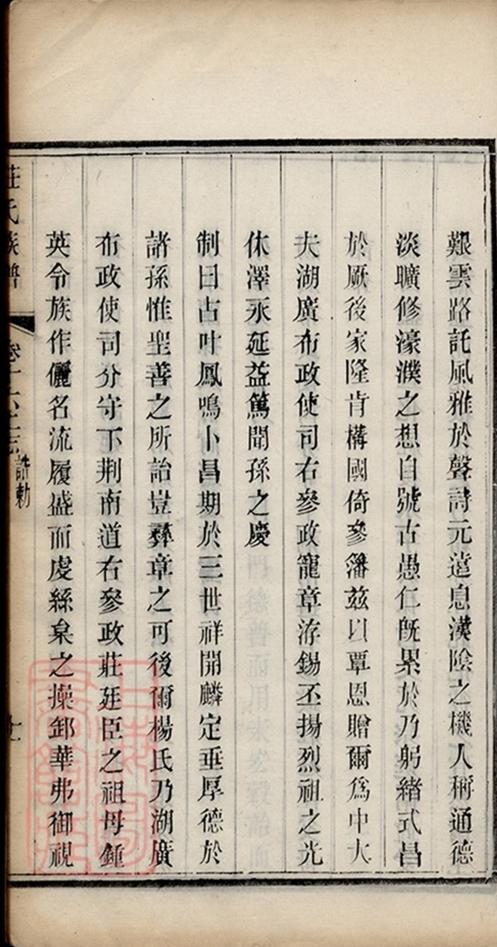 艱雲路託風雅於聲詩元造息漢陰之機人稱通德
淡曠修濠濮之想自號古愚仁旣累於乃躬緒式昌
於厥後家隆肯構國倚參藩茲以覃恩贈爾爲中大
夫湖廣布政使司右參政寵章洊錫丕揚烈祖之光
休澤永延益篤聞孫之慶
制曰古叶鳳鳴卜昌期於三世祥開麟定垂厚德於
諸孫惟聖善之所詒豈彝章之可後爾楊氏乃湖廣
布政使司分守下荆南道右參政莊廷臣之祖母鍾
英令族作儷名流履盛而虔絲枲之操卸華弗御視
莊氏族譜 卷十六上 誥勅